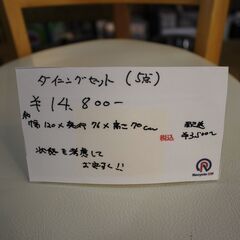 ダイニングセット (5点)
¥14,800-
約
幅120×奥行76×高さ70cm
税込
状態を考慮して
お安く!!